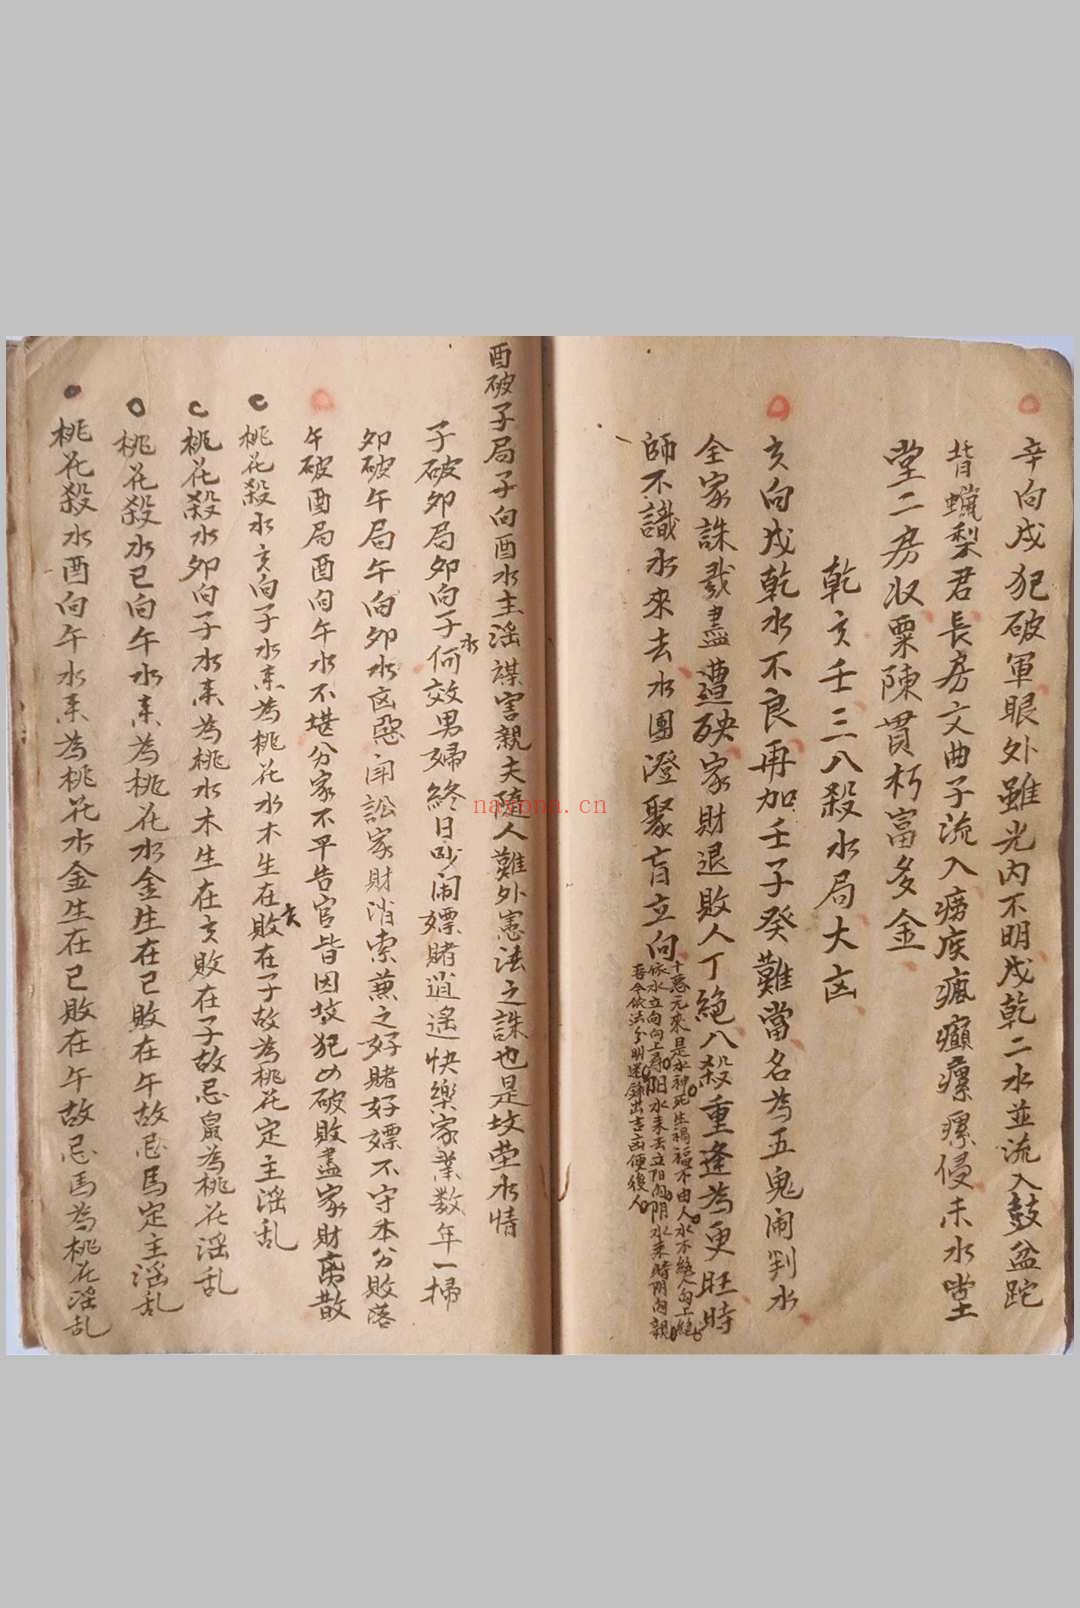 辛向戌犯破軍眼外雖光内不明戌乾二水並流入鼓盆跎
背蠟梨君長房文曲子流入癆疾瘋癲瘰瘰侵未水堂
堂二房収粟陳貫朽富多金
乾亥壬三八殺水局大凶
亥向戌乾水不良再加壬子癸難當名為五鬼闹判水
全家誅戮盡遭殃家財退敗人丁絕八殺重逢為更旺時
師不識水來去水團澄聚盲立向
十惡元來是水神死生禍福不由人水不絕人向上絕
依水立向向上尋阳水来去立阳向阴水来時阴向親
吾今依法分明迷錦出吉凶便後人
酉破子局子向酉水主淫謀害親夫隨人難外憲法之誅也是坟茔水情
子破夘局夘向子水何效男婦終日吵闹嫖賭逍遥快樂家業数年一掃
夘破午局午向夘水凶惡闹訟家財消索蕉之好賭好嫖不守本分敗落
午破酉局酉向午水不堪分家不平告官皆因坟犯凶破敗盡家財离散
桃花殺水亥向子水来為桃花水木生在亥敗在子故為桃花定主淫乱
桃花殺水夘向子水来為桃水木生在亥敗在子故忌鼠為桃花淫乱
桃花殺水巳向午水来為桃花水金生在巳敗在午故忌馬定主淫乱
桃花殺水酉向午水来為桃花水金生在巳敗在午故忌馬為桃花淫乱
naxona.cn